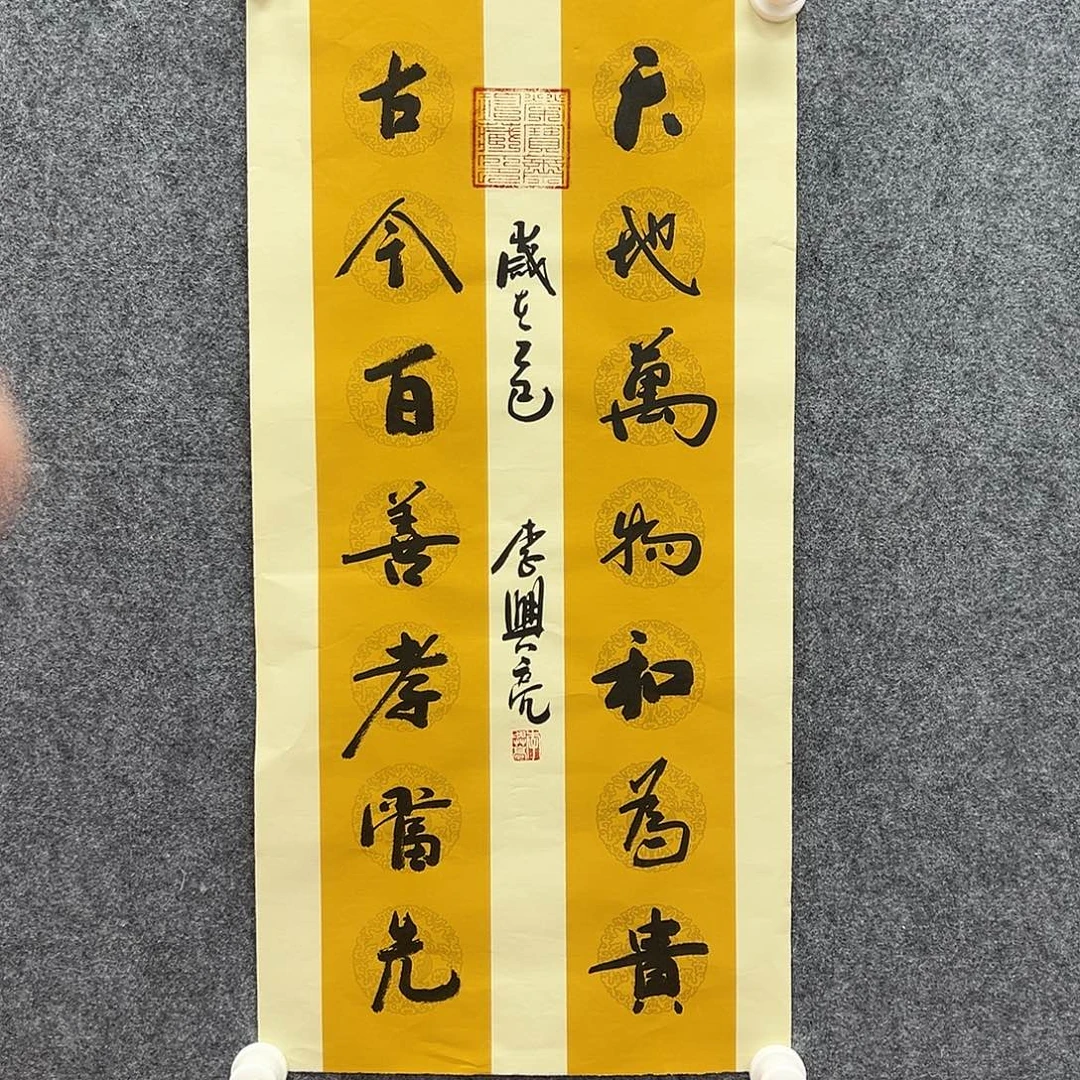 天地萬物和為貴
古今百善孝當先
歲在乙巳 李興亮